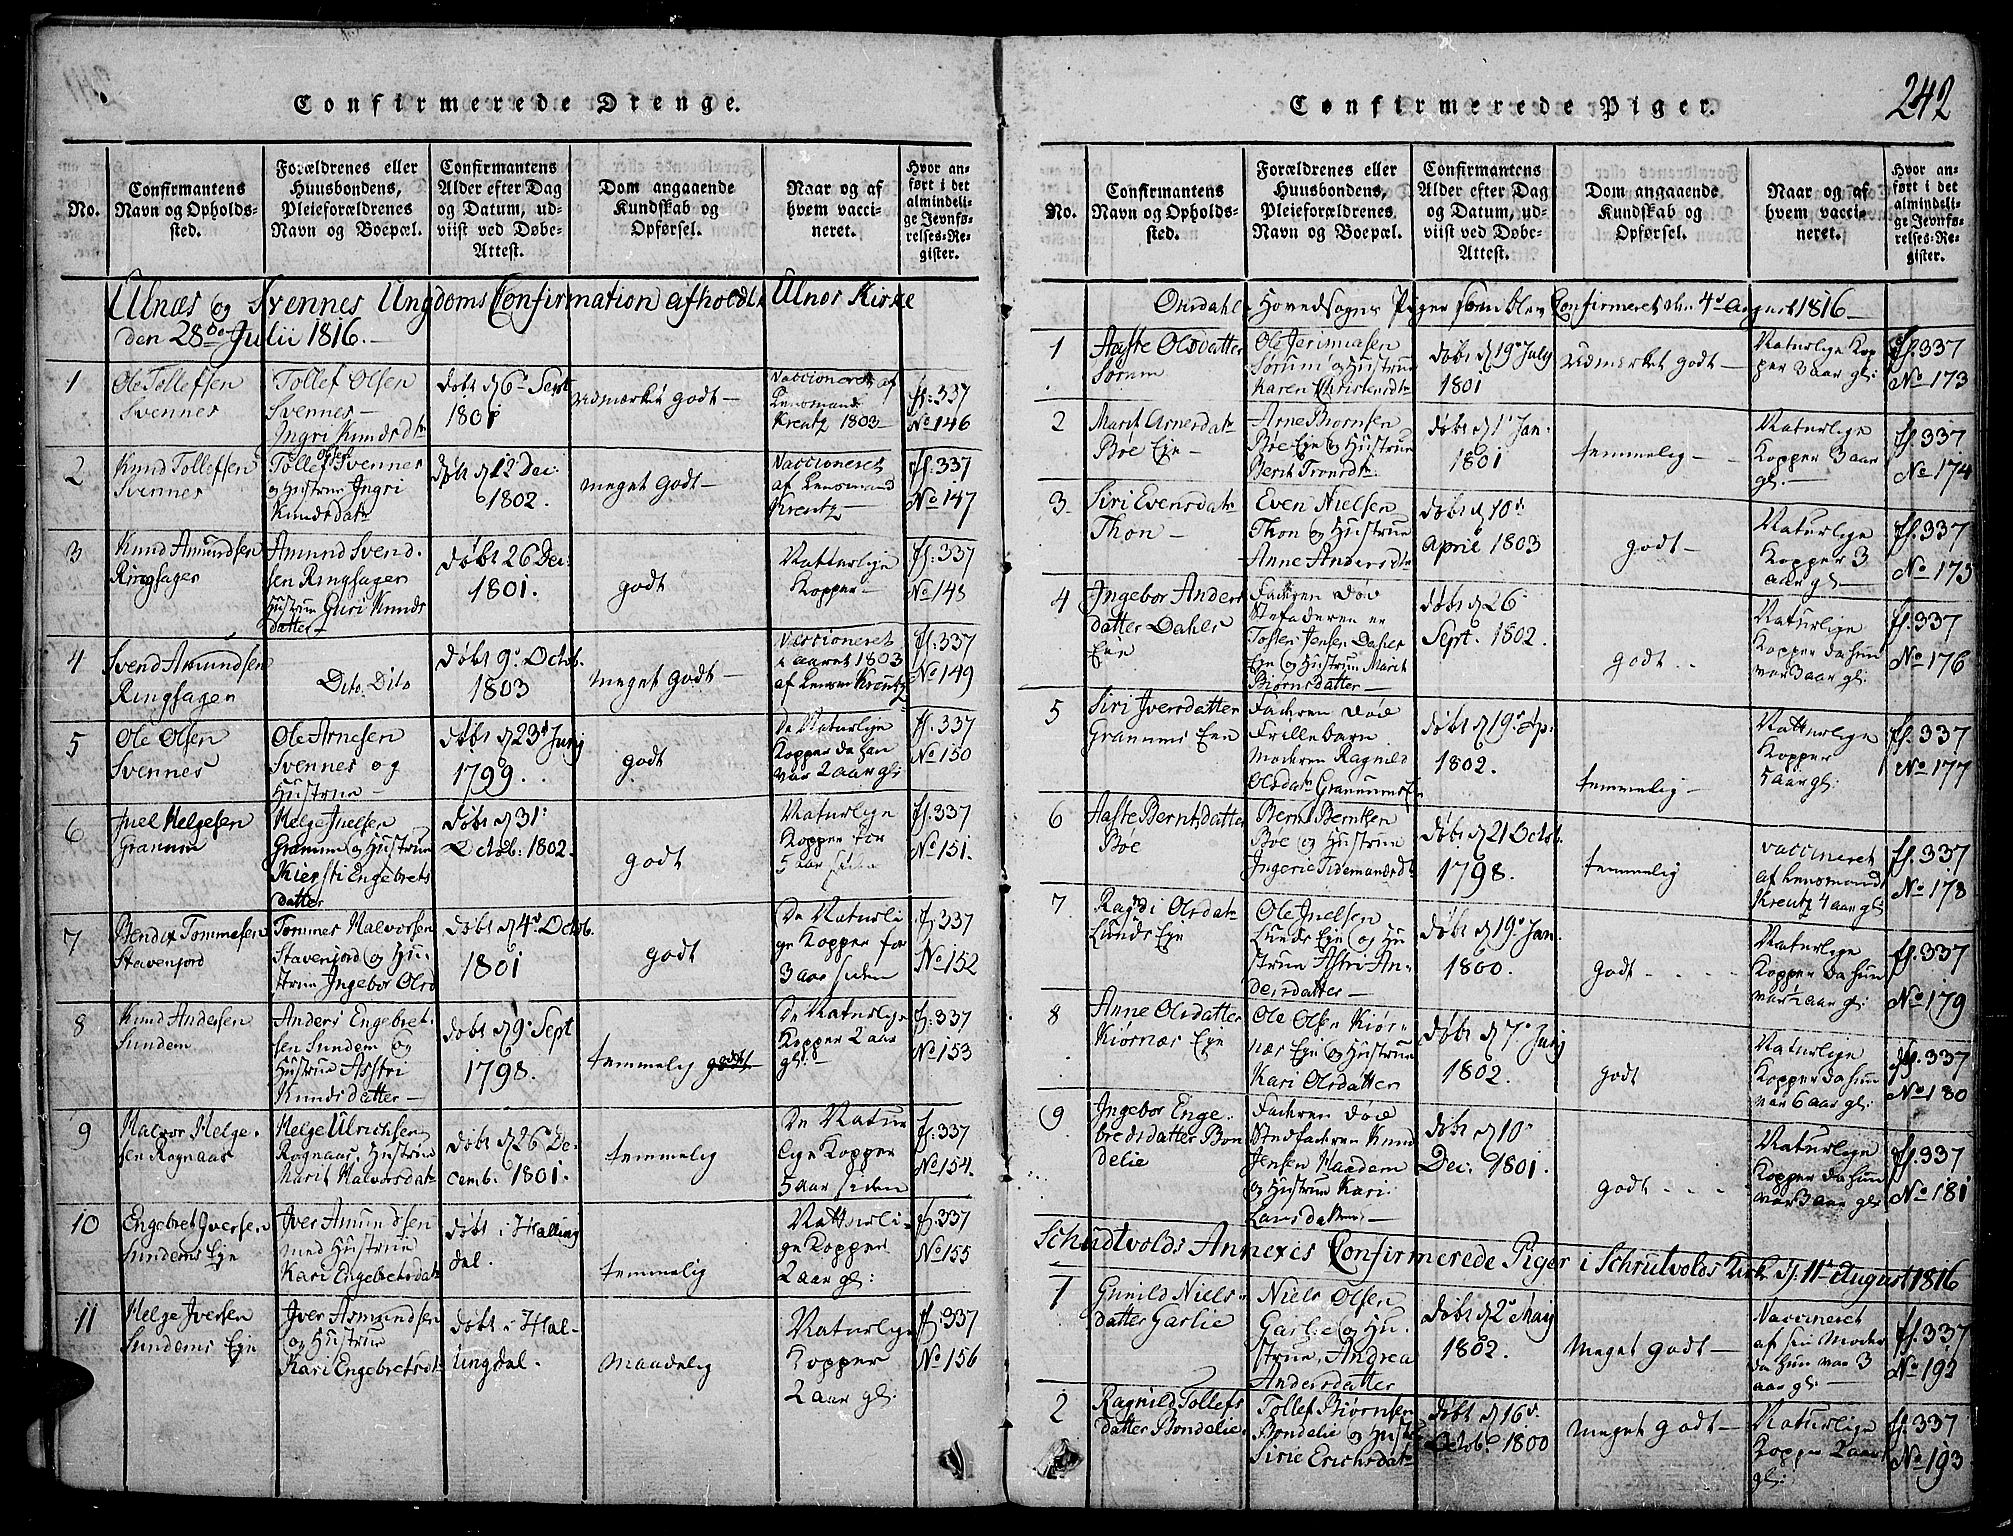 Confirmerede Drenge.
No.
Confirmantens
Navn og Opholds-
sted.
Forældrenes eller
Huusbondens,
Pleieforældrenes
Navn og Boepæl.
Confirmantens
Alder efter Dag
og Datum, ud-
viist ved Døbe-
Attest.
Dom angaaende
Kundskab og
Opførsel.
Naar og af
hvem vacci-
neret.
Hvor an-
ført i det
almindeli-
ge Jevnfø-
relses-Re-
gister.
Ulnæs og Svennes Ungdoms Confirmation afholdt i Ulnæs Kirke
den 28de Julii 1816.
1
Ole Tollefsen
Svennes
Tollef Olsen
Svennes
Ingri Knudsdtr
Døbt d 6te Sept
1801
udmærket godt
Vaccioneret af
Lensmand
Kreutz 1803
fl: 337
No 146
2
Knud Tollefsen
Svennes
Tollef Olsen Svennes
og Hustrue Ingri
Knudsdatr
Døbt d 12 Dec:
1802.
meget godt
Vaccioneret
af Lensmand
Kreutz
fl: 337
No 147
3
Knud Amundsen
Ringsager
Amund Svend-
sen Ringsager
Hustrue Guri Knuds
datter
Døbt 26 Dec:
1801.
godt
Naturlige
Kopper
fl: 337
No 148
4
Svend Amundsen
Ringsager
Dito. Dito
Døbt 9de Octob.
1803
meget godt
Vaccioneret
i aaret 1803
af Lensm Kreutz
fl: 337
No 149
5
Ole Olsen
Svennes
Ole Arnesen
Svennes og
Hustrue
Døbt d 23d Junj
1799.
godt
De Naturlige
Kopper da han
var 2 aar gl:
fl: 337
No 150
6
Juel Helgesen
Granum
Helge Juelsen
Granum og Hustrue
Kiersti Engebrets
datter
Døbt d 31:
Octob: 1802.
godt
Naturlige
Kopper for
5 aar siden
fl: 337
No 151.
7
Bendix Tommesen
Stavenjord
Tommes Halvorsen
Stavenjord og Hu-
strue Ingebor Olsd
Døbt d 4de Octob.
1801
godt
De Naturli
ge Kopper for
3 aar siden
fl: 337
No 152
8
Knud Andersen
Sundem
Anders Engebret-
sen Sundem og
Hustrue Astri
Knudsdatter
Døbt d 9de Sept
1798.
temmelig godt
De Naturlige
Kopper 2 aar
gl:
fl: 337
No 153
9
Halvor Helge-
sen Rognaas
Helge Ulrichsen
Rognaas, Hustrue
Marit Halvorsdatr
Døbt d 26 De-
cemb: 1801.
temmelig
De Natur
lige Kopper
5 aar siden
fl: 337
No 154.
10
Engebret Iversen
Sundems Eje
Iver Amundsen
med Hustrue
Kari Engebretsdatr
Døbt i Halling
dal.
temmelig
Natturli-
ge Kopper
2 aar gl:
fl: 337
No 155
11
Helge Iversen
Sundems Eje
Iver Asmundsen
og Hustrue
Kari Engebretsdtr
Døbt i Hal-
lingdal.
maadelig
Naturlige
Kopper
2 aar gl:
fl: 337
No 156
Confirmerede Piger.
242
No.
Confirmantens
Navn og Opholds-
sted.
Forældrenes eller
Huusbondens,
Pleieforældrenes
Navn og Boepæl.
Confirmantens
Alder efter Dag
og Datum, ud-
viist ved Døbe-
Attest.
Dom angaaende
Kundskab og
Opførsel.
Naar og af
hvem vacci-
neret.
Hvor an-
ført i det
almindeli-
ge Jevnfø-
relses-Re-
gister.
Ourdahls Hovedsogns Piger som blev Confirmeret den 4de August 1816
1
Aaste Olsdatter
Sørum
Ole Jerimiasen
Sørum og Hustrue
Karen Christensdtr
Døbt d 19de July
1801
udmerket godt
Naturlige Kop
per 3 aar gl:
fl: 337
No 173
2
Marit Arnesdatr
Bøe Eje
Arne Biørnsen
Bøe Eje og Hustrue
Berit Trondsdtr
Døbt d 1te Jan.
1801
temmelig
Naturlige
Kopper 3 aar
gl:
fl: 337
No 174
3
Siri Evensdatr
Thon
Even Nielsen
Thon og Hustrue
Anne Andersdtr
Døbt d 10de
April 1803
godt
Naturlige
Kopper 3
aar gl:
fl: 337
No 175
4
Ingebor Anders
datter Dahls
Eje
Faderen Død
Stefaderen er
Tosten Jensen Dahls
Eje og Hustrue Marit
Biørnsdatter
Døbt d 26
Sept. 1802.
godt
Naturlige
Kopper da hun
var 3 aar gl:
fl: 337
No 176
5
Siri Iversdatter
Granums Eje
Faderen Død
Frillebarn
Moderen Ragnild
Olsdatr Granums E
Døbt d 19de Ap.
1802.
temmelig
Natturlige
Kopper
5 aar gl:
fl: 337
No 177
6
Aaste Berntsdatter
Bøe
Bernt Berntsen
Bøe og Hustrue
Ingerie Tidemandsdtr
Døbt d 21 Octob.
1798.
temmelig
vaccineret
af Lensmand
Kreutz 4 aar gl:
fl: 337
No 178
7
Ragndi Olsdatr
Lunds Eje
Ole Juelsen
Lunds Eje og Hu
strue Astri An-
dersdatter
Døbt d 19de Jan.
1800.
godt
Naturlige
Kopper da hun
var 2 aar gl:
fl: 337
No 179
8
Anne Olsdatter
Kiørnæs Eje
Ole Olsen Kiør-
næs Eje og Hustrue
Kari Olsdatter
Døbt d 7de Junj
1802.
godt
Naturlige
Kopper da hun
var 6 aar gl:
fl: 337
No 180
9
Ingebor Enge-
bredsdatter Bon
delie
Faderen Død
Stedfaderen Knud
Jensen Haadem
og Hustrue Kari
Larsdatter
Døbt d 10de
Dec: 1801.
godt
Naturlige
Kopper da hun
var 3 aar gl:
fl: 337
No 181
Schrudtvolds Annexes Confirmerede Piger i Schrutvolds Kirke d: 11te August 1816
1
Gunild Niels-
datter Garlie
Niels Olsen
Garlie og Hu-
strue Andrea
Andersdatter
Døbt d 2de Maij
1802.
meget godt
Vaccineret
af sin Moder
da hun var 3
aar gl:
fl: 337
No 192
2
Ragnild Tollefs
datter Bondelie
Tollef Biørnsen
Bondelie og Hust
Sirie Erichsdatr
Døbt d 16de
Octob. 1800
meget godt
Naturlige
Kopper 2 aar
gl:
fl: 337
No 193